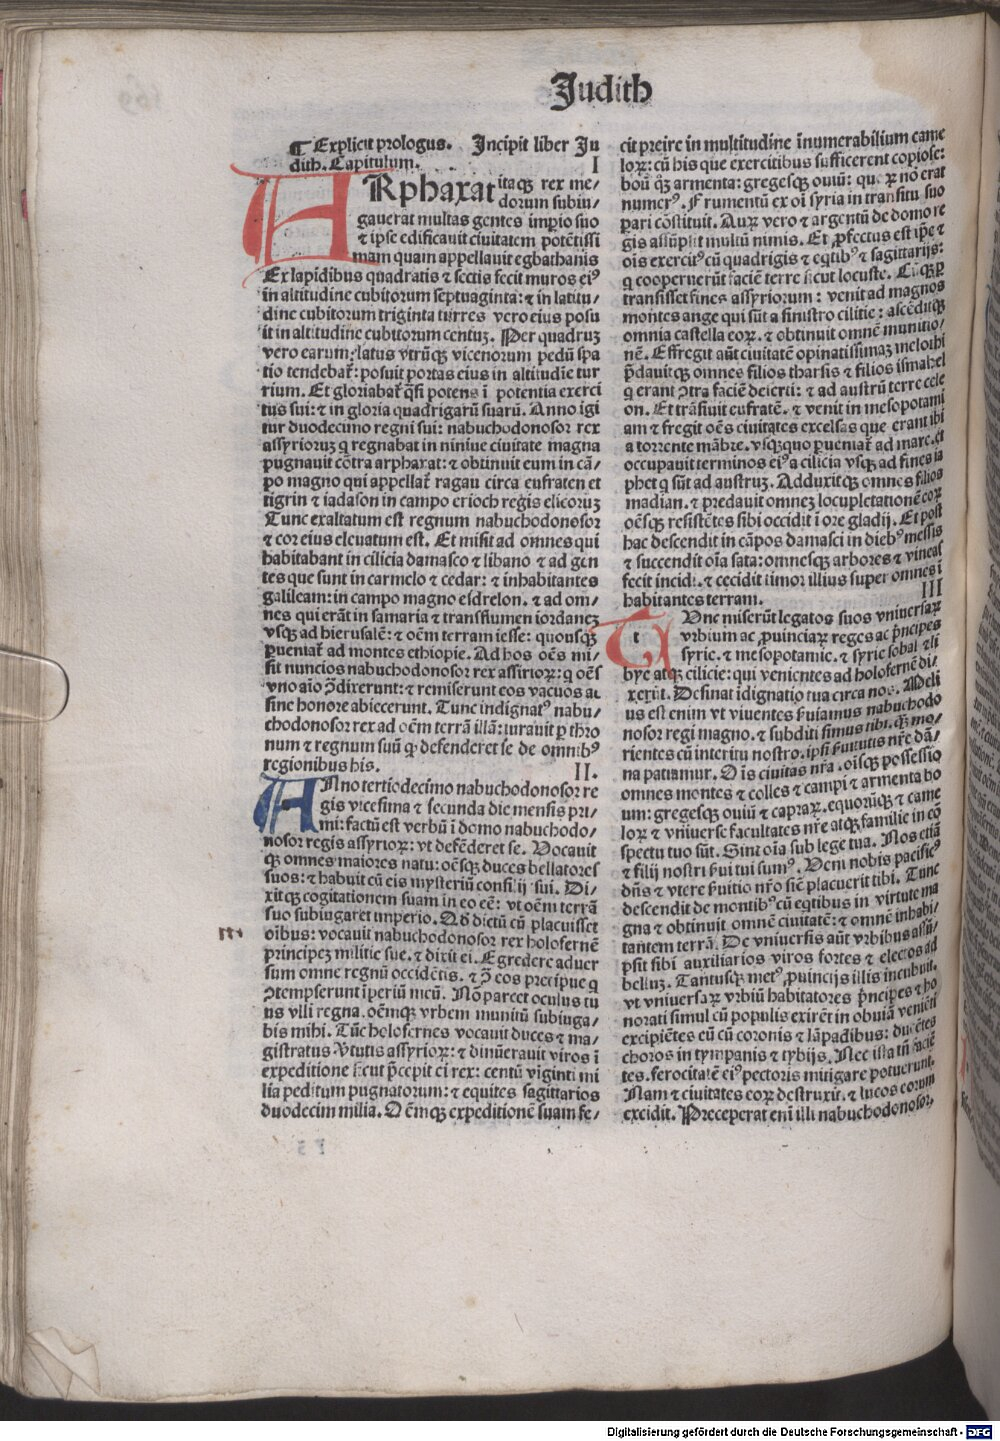 Judith
¶ Explicit prologus. Incipit liber Ju
dith. Capitulum. I
ARphaxat itaqȝ rex me/
dorum subiu/
gauerat multas gentes imp̱io suo
⁊ ipse edificauit ciuitatem potētissi
mam quam appellauit egbathanis
Ex lapidibus quadratis ⁊ sectis fecit muros eiꝰ
in altitudine cubitorum septuaginta: ⁊ in latitu/
dine cubitorum triginta turres vero eius posu
it in altitudine cubitorum centuȝ. Per quadruȝ
vero earum latus vtrūqȝ vicenorum pedū spa
tio tendebat̉: posuit portas eius in altitudīe tur
rium. Et gloriabat̉ q̄si potens ī potentia exerci
tus sui: ⁊ in gloria quadrigarū suarū. Anno igi
tur duodecimo regni sui: nabuchodonosor rex
assyrioruȝ q regnabat in niniue ciuitate magna
pugnauit cōtra arphaxat: ⁊ obtinuit eum in cā/
po magno qui appellat̉ ragau circa eufraten et
tigrin ⁊ iadason in campo erioch regis elicoruȝ
Tunc exaltatum est regnum nabuchodonosor
⁊ cor eius eleuatum est. Et misit ad omnes qui
habitabant in cilicia damasco ⁊ libano ⁊ ad gen
tes que sunt in carmelo ⁊ cedar: ⁊ inhabitantes
galileam: in campo magno esdrelon. ⁊ ad om/
nes qui erāt in samaria ⁊ transflumen iordaneȝ
vsqȝ ad hierusalē: ⁊ oēm terram iesse: quousqȝ
ꝑueniat̉ ad montes ethiopie. Ad hos oēs mi/
sit nuncios nabuchodonosor rex assirioꝝ: q oēs
vno aīo ꝯdixerunt: ⁊ remiserunt eos vacuos ac
sine honore abiecerunt. Tunc indignatꝰ nabu/
chodonosor rex ad oēm terrā illā: iurauit ꝑ thro
num ⁊ regnum suū ꝙ defenderet se de omnibꝰ
regionibus his. II.
ANno tertiodecimo nabuchodonosor re
gis vicesima ⁊ secunda die mensis pri/
mi: factū est verbū ī domo nabuchodo/
nosor regis assyrioꝝ: vt defēderet se. Vocauit
qȝ omnes maiores natu: oēsqȝ duces bellatores
suos: ⁊ habuit cū eis mysteriū consilij sui. Di/
xitqȝ cogitationem suam in eo eē: vt oēm terrā
suo subiugaret imperio. Qd̄ dictū cū placuisset
oībus: vocauit nabuchodonosor rex holofernē
principeȝ militie sue. ⁊ dixit ei. Egredere aduer
sum omne regnū occidētis. ⁊ ꝯ̄ eos precipue q
ꝯtempserunt īperiū meū. Nō parcet oculus tu
us vlli regno. oēmqȝ vrbem munitū subiuga/
bis mihi. Tūc holofernes vocauit duces ⁊ ma/
gistratus v̉tutis assyrioꝝ: ⁊ dinūerauit viros ī
expeditione sicut p̄cepit ei rex: centū viginti mi
lia peditum pugnatorum: ⁊ equites sagittarios
duodecim milia. Oēmqȝ expeditionē suam fe/
cit preire in multitudine īnumerabilium came
loꝝ: cū his que exercitibus sufficerent copiose:
boū qȝ armenta: gregesqȝ ouiū: quoꝝ nō erat
numerꝰ. Frumentū ex oī syria in transitu suo
parari cōstituit. Auꝝ vero ⁊ argentū de domo re
gis assūpsit multū nimis. Et ꝓfectus est ip̄e ⁊
oīs exercitꝰ cū quadrigis ⁊ eqtibꝰ ⁊ sagittarijs:
q cooperuerūt faciē terre sicut locuste. Cūqȝ ꝑ
transisset fines assyriorum: venit ad magnos
montes ange qui sūt a sinistro cilitie: ascēditqȝ
omnia castella eoꝝ. ⁊ obtinuit omnē munitio/
nē. Effregit aūt ciuitatē opinatissimaȝ melothi
p̄dauitqȝ omnes filios tharsis ⁊ filios ismahel
q erant ꝯtra faciē deserti: ⁊ ad austrū terre cele
on. Et trāsiuit eufratē. ⁊ venit in mesopotami
am ⁊ fregit oēs ciuitates excelsas que erant ibi
a torrente mābre. vsqȝquo ꝑueniat̉ ad mare. et
occupauit terminos eiꝰ a cilicia vsqȝ ad fines ia
phet q sūt ad austruȝ. Adduxitqȝ omnes filios
madian. ⁊ predauit omneȝ locupletationē eoꝝ
oēsqȝ resistētes sibi occidit ī ore gladij. Et post
hac descendit in cāpos damasci in diebꝰ messis
⁊ succendit oīa sata: omnesqȝ arbores ⁊ vineas
fecit incidi. ⁊ cecidit timor illius super omnes ī
habitantes terram. III
Tt Vnc miserūt legatos suos vniuersaꝝ
vrbium ac ꝓuinciaꝝ reges ac p̄ncipes
syrie. ⁊ mesopotamie. ⁊ syrie sobal ⁊ li
bye atqȝ cilicie: qui venientes ad holofernē di/
xerūt. Desinat īdignatio tua circa nos. Meli
us est enim vt viuentes ẜuiamus nabuchodo
nosor regi magno. ⁊ subditi simus tibi. qȝ mo/
rientes cū interitu nostro. ipsi ẜuitutis nr̄e dā/
na patiamur. Oīs ciuitas nr̄a. oīsqȝ possessio
omnes montes ⁊ colles ⁊ campi ⁊ armenta bo
um: gregesqȝ ouiū ⁊ capraꝝ. equorūqȝ ⁊ came
loꝝ ⁊ vniuerse facultates nr̄e atqȝ familie in cō
spectu tuo sūt. Sint oīa sub lege tua. Nos etiā
⁊ filij nostri ẜui tui sumꝰ. Veni nobis pacificꝰ
dn̄s ⁊ vtere ẜuitio nr̄o sic̄ placuerit tibi. Tunc
descendit de montibꝰ cū eqtibus in virtute ma
gna ⁊ obtinuit omnē ciuitatē: ⁊ omnē inhabi/
tantem terrā. De vniuersis aūt vrbibus assū/
psit sibi auxiliarios viros fortes ⁊ electos ad
belluȝ. Tantusqȝ metꝰ ꝓuincijs illis incubuit.
vt vniuersaꝝ vrbiū habitatores p̄ncipes ⁊ ho
norati simul cū populis exirēt in obuiā veniēti
excipiētes eū cū coronis ⁊ lāpadibus: ducētes
choros in tympanis ⁊ tybijs. Nec ista tn̄ faciē
tes. ferocitatē eiꝰ pectoris mitigare potuerunt.
Nam ⁊ ciuitates eoꝝ destruxit. ⁊ lucos eorum
excidit. Preceperat eni illi nabuchodonosor,
Digitalisierung gefördert durch die Deutsche Forschungsgemeinschaft - DFG